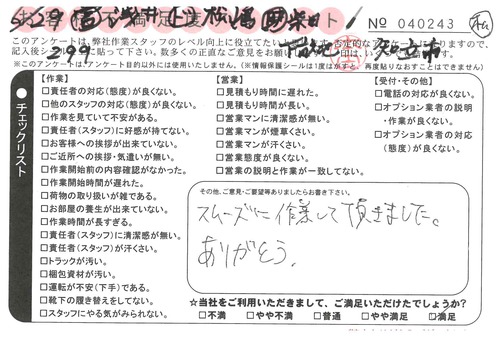 № 040243
このアンケートは、弊社作業スタッフのレベル向上に役立てたい
記入後シール
※このアンケートは上記アンケート目的以外には使用いたしません。(※情報保護シールは1度はがすと、再度貼りなおすことはできません)
チェックリスト
【作業】
□責任者の対応(態度)が良くない。
□他のスタッフの対応(態度)が良くない。
□作業を見ていて不安がある。
□責任者(スタッフ)に好感が持てない。
□お客様への挨拶が出来ていない。
□ご近所への挨拶・気遣いが無い。
□作業開始前の内容確認がなかった。
□作業開始時間が遅れた。
□荷物の取り扱いが雑である。
□お部屋の養生が出来ていない。
□作業時間が長すぎる。
□責任者(スタッフ)に清潔感が無い。
□責任者(スタッフ)が汗くさい。
□トラックが汚い。
□梱包資材が汚い。
□運転が不安(下手)である。
□靴下の履き替えをしてない。
□スタッフにやる気がみられない。
【営業】
□見積もり時間に遅れた。
□見積もり時間が長い。
□営業マンに清潔感が無い。
□営業マンが煙草くさい。
□営業マンが汗くさい。
□営業態度が良くない。
□営業の説明と作業が一致してない。
【受付・その他】
□電話の対応が良くない。
□オプション業者の説明
・作業が良くない。
□オプション業者の対応
(態度)が良くない。
その他、ご意見・ご要望等ありましたらお書き下さい。
スムーズに作業して頂きました。
ありがとう。
☆当社をご利用いただきまして、ご満足いただけたでしょうか?
□不満 □やや不満 □普通 □やや満足 □満足